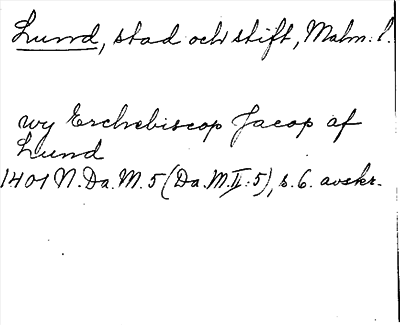 Lund, stad och stift, Malm. l.
wy Erchebiscop Jacop af
Lund
1401 N. Da. M. 5 (Da. M. II: 5), s. 6. avskr.